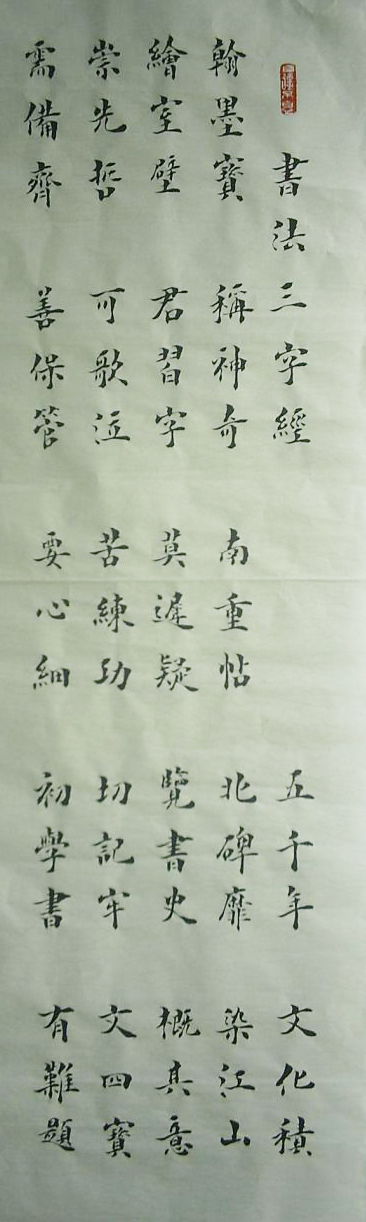 書法三字經 五千年 文化積
翰墨寶 稱神奇 南重帖 北碑靡 染江山
繪室壁 君習字 莫遲疑 覽書史 概其意
崇先哲 可歌泣 苦練功 切記牢 文四寶
需備齊 善保管 要心細 初學書 有難題